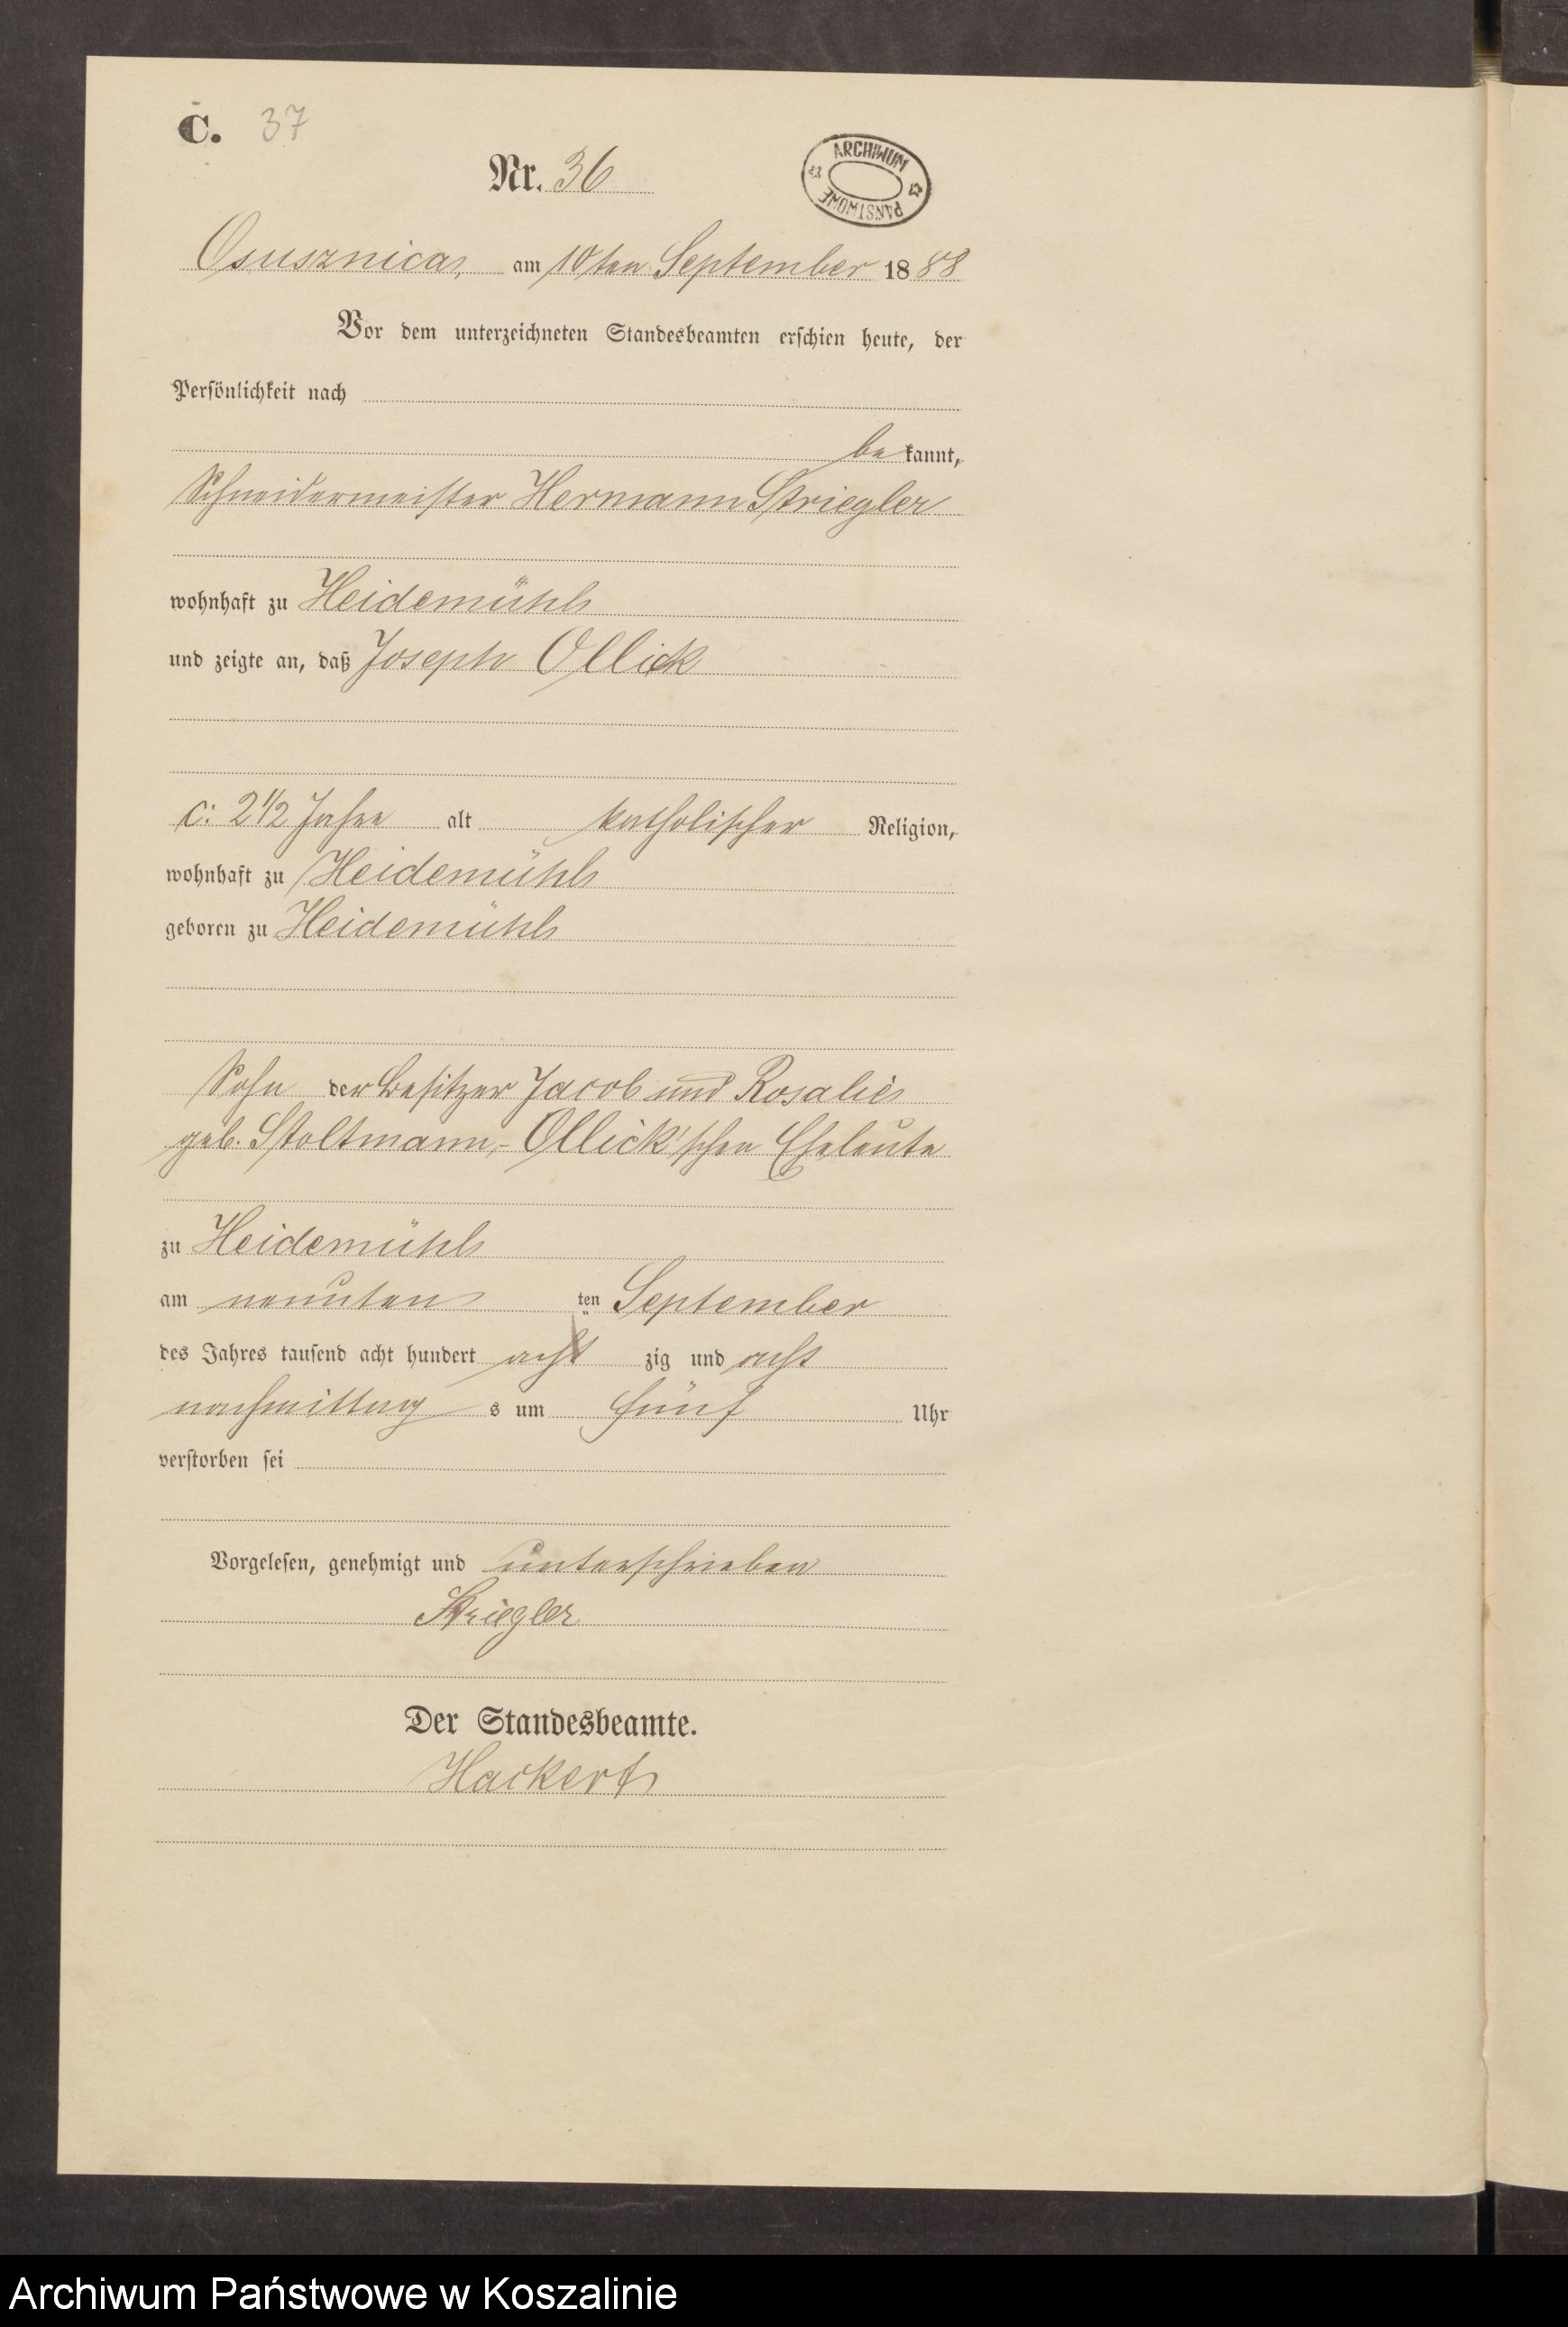 C. 37
Nr. 36
ARCHIWUM PAŃSTWOWE
Osusznica, am 10ten September 1888
Vor dem unterzeichneten Standesbeamten erschien heute, der
Persönlichkeit nach
bekannt,
Schneidermeister Hermann Striegler
wohnhaft zu Heidemühl
und zeigte an, daß Joseph Ollick
c: 2 1/2 Jahre alt katholischer Religion,
wohnhaft zu Heidemühl
geboren zu Heidemühl
Sohn der Besitzer Jacob und Rosalie
geb. Stoltmann,- Ollick'schen Eheleute
zu Heidemühl
am neunten ten September
des Jahres tausend acht hundert acht zig und acht
nachmittag s um fünf Uhr
verstorben sei
Vorgelesen, genehmigt und unterschrieben
Striegler
Der Standesbeamte.
Hackert
Archiwum Państwowe w Koszalinie